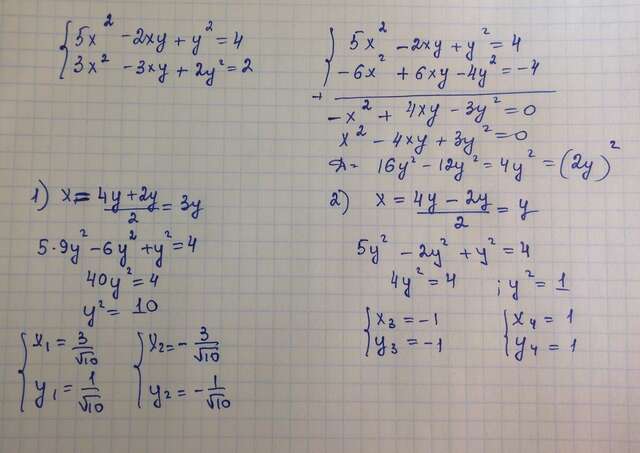 { 5x² - 2xy + y² = 4
3x² - 3xy + 2y² = 2
{ 5x² - 2xy + y² = 4
-6x² + 6xy - 4y² = -4
+
-x² + 4xy - 3y² = 0
x² - 4xy + 3y² = 0
D = 16y² - 12y² = 4y² = (2y)²
1) x = (4y + 2y)/2 = 3y
5·9y² - 6y² + y² = 4
40y² = 4
y² = 10
{ x₁ = 3/√10
y₁ = 1/√10
{ x₂ = - 3/√10
y₂ = - 1/√10
2) x = (4y - 2y)/2 = y
5y² - 2y² + y² = 4
4y² = 4 ; y² = 1
{ x₃ = -1
y₃ = -1
{ x₄ = 1
y₄ = 1